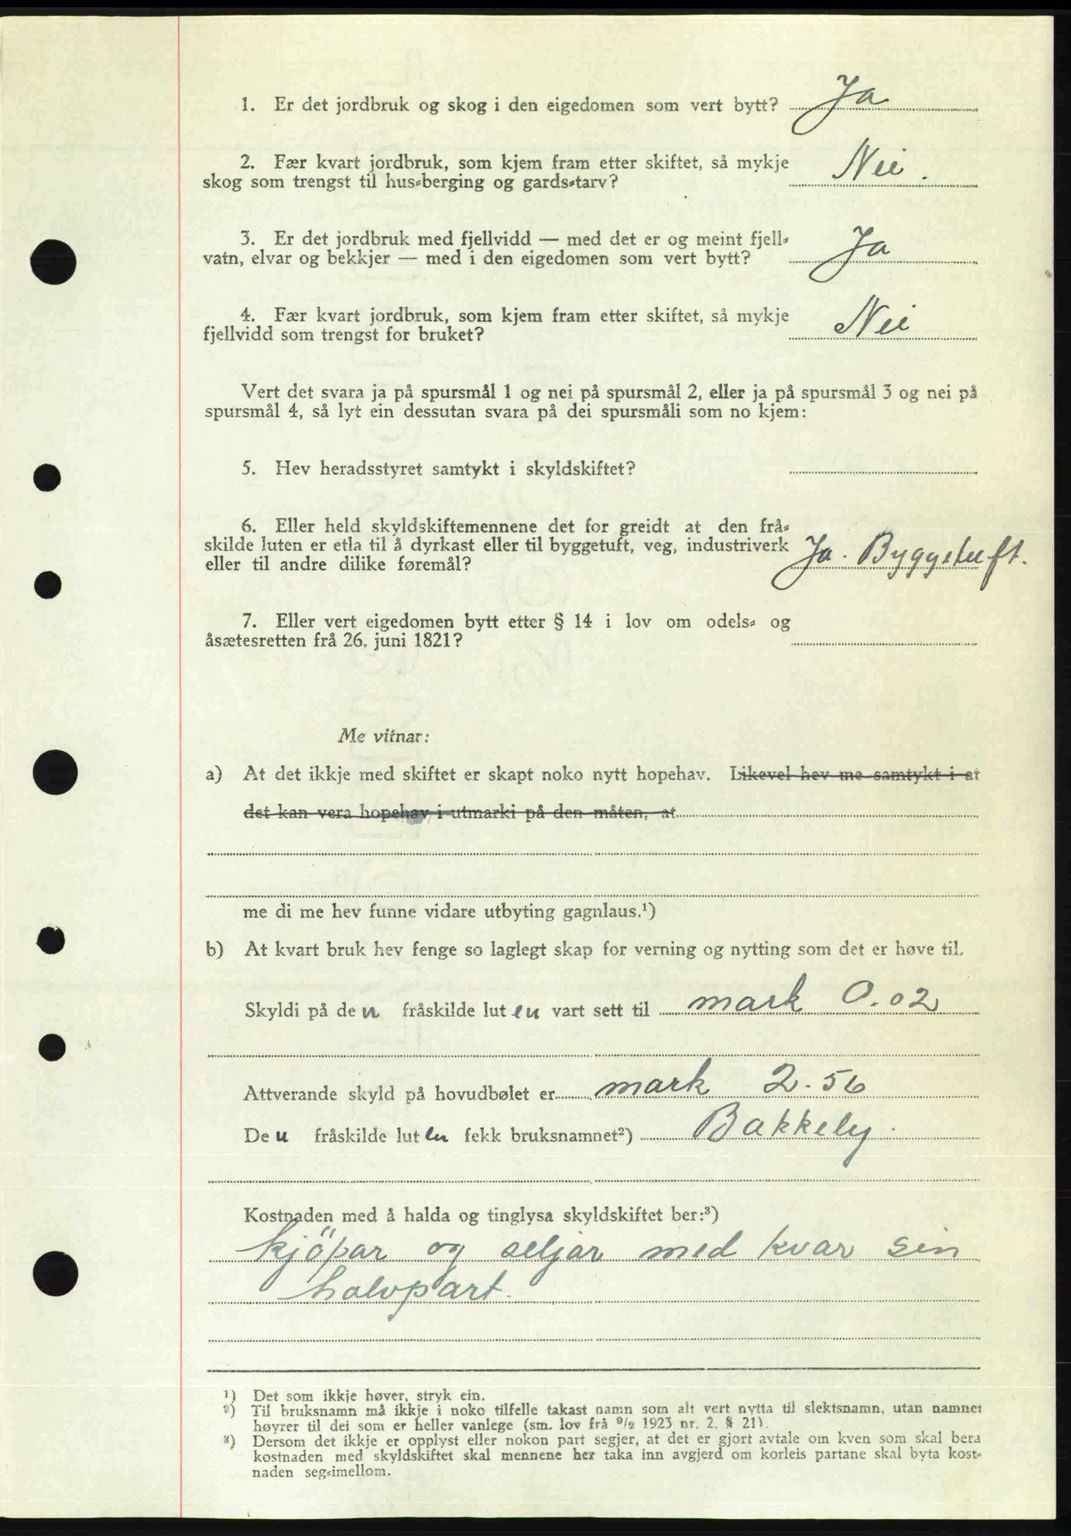 1. Er det jordbruk og skog i den eigedomen som vert bytt? Ja
2. Fær kvart jordbruk, som kjem fram etter skiftet, så mykje
skog som trengst til hus-berging og gards-tarv? Nei.
3. Er det jordbruk med fjellvidd — med det er og meint fjell-
vatn, elvar og bekkjer — med i den eigedomen som vert bytt? Ja
4. Fær kvart jordbruk, som kjem fram etter skiftet, så mykje
fjellvidd som trengst for bruket? Nei
Vert det svara ja på spursmål 1 og nei på spursmål 2, eller ja på spursmål 3 og nei på
spursmål 4, så lyt ein dessutan svara på dei spursmåli som no kjem:
5. Hev heradsstyret samtykt i skyldskiftet?
6. Eller held skyldskiftemennene det for greidt at den frå-
skilde luten er etla til å dyrkast eller til byggetuft, veg, industriverk
eller til andre dilike føremål? Ja. Byggetuft.
7. Eller vert eigedomen bytt etter § 14 i lov om odels- og
åsætesretten frå 26. juni 1821?
Me vitnar:
a) At det ikkje med skiftet er skapt noko nytt hopehav. Likevel hev me samtykt i at
det kan vera hopehav i utmarki på den måten, at
me di me hev funne vidare utbyting gagnlaus.¹)
b) At kvart bruk hev fenge so laglegt skap for verning og nytting som det er høve til.
Skyldi på den fråskilde luten vart sett til mark 0.02
Attverande skyld på hovudbølet er mark 2.56
Den fråskilde luten fekk bruksnamnet²) Bakkely.
Kostnaden med å halda og tinglysa skyldskiftet ber:³)
kjöpar og seljar med kvar sin
halvpart.
¹) Det som ikkje høver, stryk ein.
²) Til bruksnamn må ikkje i noko tilfelle takast namn som alt vert nytta til slektsnamn, utan namnet
høyrer til dei som er heller vanlege (sm. lov frå 9/2 1923 nr. 2. § 21).
³) Dersom det ikkje er opplyst eller nokon part segjer, at det er gjort avtale om kven som skal bera
kostnaden med skyldskiftet skal mennene her taka inn avgjerd om korleis partane skal byta kost-
naden seg-imellom.